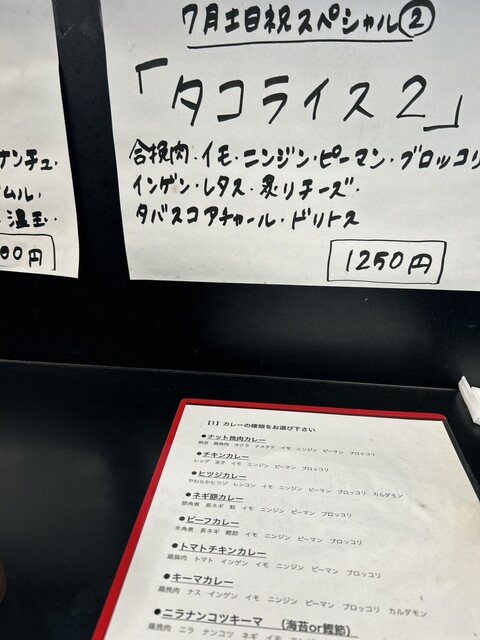 7月土日祝スペシャル②
「タコライス2」
合挽肉・イモ・ニンジン・ピーマン・ブロッコリ
インゲン・レタス・炙りチーズ・
タバスコアチャール・ドリトス
1250円
ナンチュ・
ムル・
温玉・
00円
【1】カレーの種類をお選び下さい
●ナット挽肉カレー
納豆 鶏挽肉 オクラ ナメタケ イモ ニンジン ピーマン ブロッコリ
●チキンカレー
レッグ 玉子 イモ ニンジン ピーマン ブロッコリ
●ヒツジカレー
やわらかヒツジ レンコン イモ ニンジン ピーマン ブロッコリ カルダモン
●ネギ豚カレー
豚角煮 長ネギ 麩 イモ ニンジン ピーマン ブロッコリ
●ビーフカレー
牛角煮 長ネギ 鰹節 イモ ニンジン ピーマン ブロッコリ
●トマトチキンカレー
鶏胸肉 トマト インゲン イモ ニンジン ピーマン ブロッコリ
●キーマカレー
鶏挽肉 ナス インゲン イモ ニンジン ピーマン ブロッコリ カルダモン
●ニラナンコツキーマ （海苔or鰹節）
鶏挽肉 ニラ ナンコツ ネギ イモ ニンジン